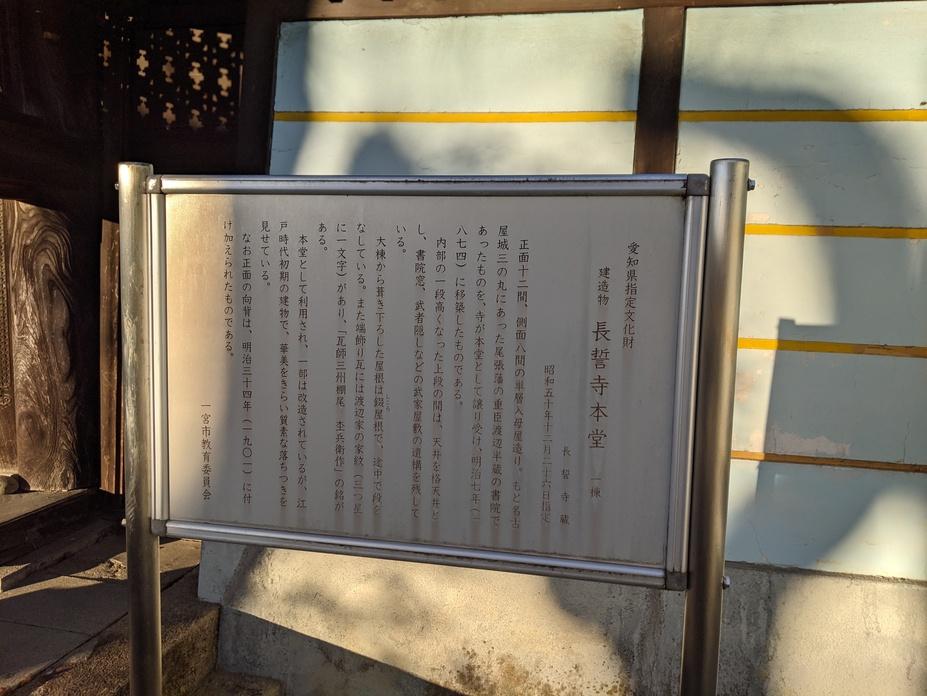 愛知県指定文化財
建造物 長誓寺本堂 一棟
長誓寺蔵
昭和五十年十二月二十六日指定
正面十二間、側面八間の単層入母屋造り。もと名古
屋城三の丸にあった尾張藩の重臣渡辺半蔵の書院で
あったものを、寺が本堂として譲り受け、明治七年(一
八七四)に移築したものである。
内部の一段高くなった上段の間は、天井を格天井と
し、書院窓、武者隠しなどの武家屋敷の遺構を残して
いる。
大棟から葺き下ろした屋根は錣屋根で、途中で段を
なしている。また端飾り瓦には渡辺家の家紋(三つ星
に一文字)があり、「瓦師三州棚尾 杢兵衛作」の銘が
ある。
本堂として利用され、一部は改造されているが、江
戸時代初期の建物で、華美をきらい質素な落ちつきを
見せている。
なお正面の向背は、明治三十四年(一九〇一)に付
け加えられたものである。
一宮市教育委員会